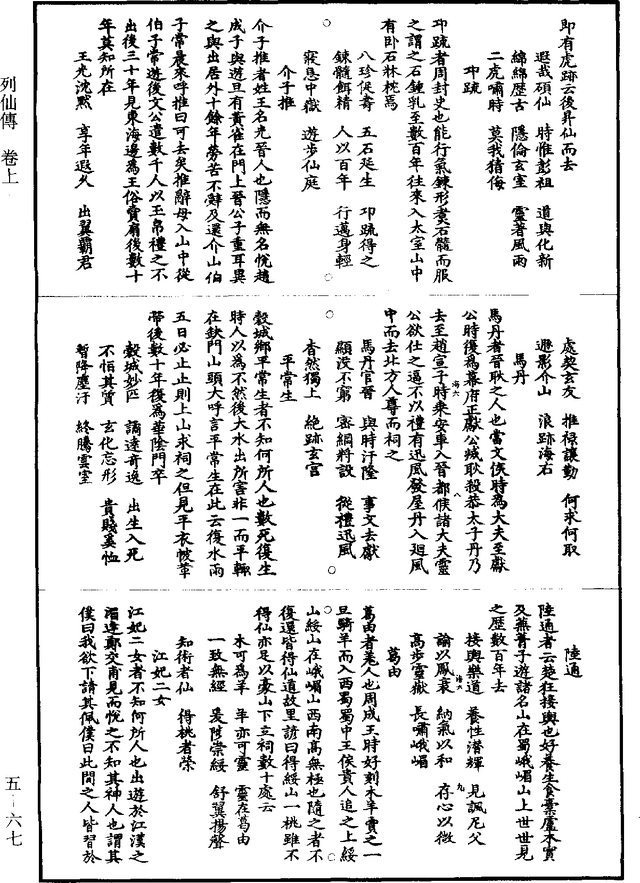 即有虎跡云後昇仙而去
遐哉碩仙　時惟彭祖　道與化新
綿綿歷古　隱倫玄室　靈著風雨
二虎嘯時　莫我猜侮
卭疏
卭疏者周封史也能行氣鍊形煑石髓而服
之謂之石鍾乳至數百年往來入太室山中
有卧石牀枕焉
八珍促壽　五石延生　卭疏得之
鍊髓餌精　人以百年　行邁身輕
寢息中嶽　遊步仙庭
介子推
介子推者姓王名光晉人也隱而無名悅趙
成子與遊旦有黃雀在門上晉公子重耳異
之與出居外十餘年勞苦不辭及還介山伯
子常晨來呼推曰可去矣推辭母入山中從
伯子常遊後文公遣數千人以玉帛禮之不
出後三十年見東海邊為王俗賣扇後數十
年莫知所在
王光沈默　享年遐久　出翼霸君
處契玄友　推祿讓勤　何求何取
遯影介山　浪跡海右
馬丹
馬丹者晉耿之人也當文侯時為大夫至獻
公時復為幕府正獻公滅耿殺恭太子丹乃
去至趙宣子時乘安車入晉都候諸大夫靈
公欲仕之逼不以禮有迅風發屋丹入迴風
中而去北方人尊而祠之
馬丹官晉　與時汙隆　事文去獻
顯沒不窮　密網將設　從禮迅風
杳然獨上　絶跡玄宮
平常生
穀城鄉平常生者不知何所人也數死復生
時人以為不然後大水出所害非一而平輒
在缺門山頭大呼言平常生在此云復水雨
五日必止止則上山求祠之但見平衣帔革
帶後數十年復為華陰門卒
穀城妙匹　譎達奇逸　出生入死
不恒其質　玄化忘形　貴賤奚恤
暫降塵汙　終騰雲室
陸通
陸通者云楚狂接輿也好養生食橐盧木實
及蕪菁子遊諸名山在蜀峨嵋山上世世見
之歷數百年去
接輿樂道　養性潛輝　見諷尼父
諭以鳳衰　納氣以和　存心以微
高步靈嶽　長嘯峨嵋
葛由
葛由者羗人也周成王時好刻木羊賣之一
旦騎羊而入西蜀蜀中王侯貴人追之上綏
山綏山在峨嵋山西南高無極也隨之者不
復還皆得仙道故里諺曰得綏山一桃雖不
得仙亦足以豪山下立祠數十處云
木可為羊　羊亦可靈　靈在葛由
一致無經　爰陟崇綏　舒翼揚聲
知術者仙　得桃者榮
江妃二女
江妃二女者不知何所人也出遊於江漢之
湄逢鄭交甫見而悅之不知其神人也謂其
僕曰我欲下請其佩僕曰此間之人皆習於
列仙傳　卷上
五—六七